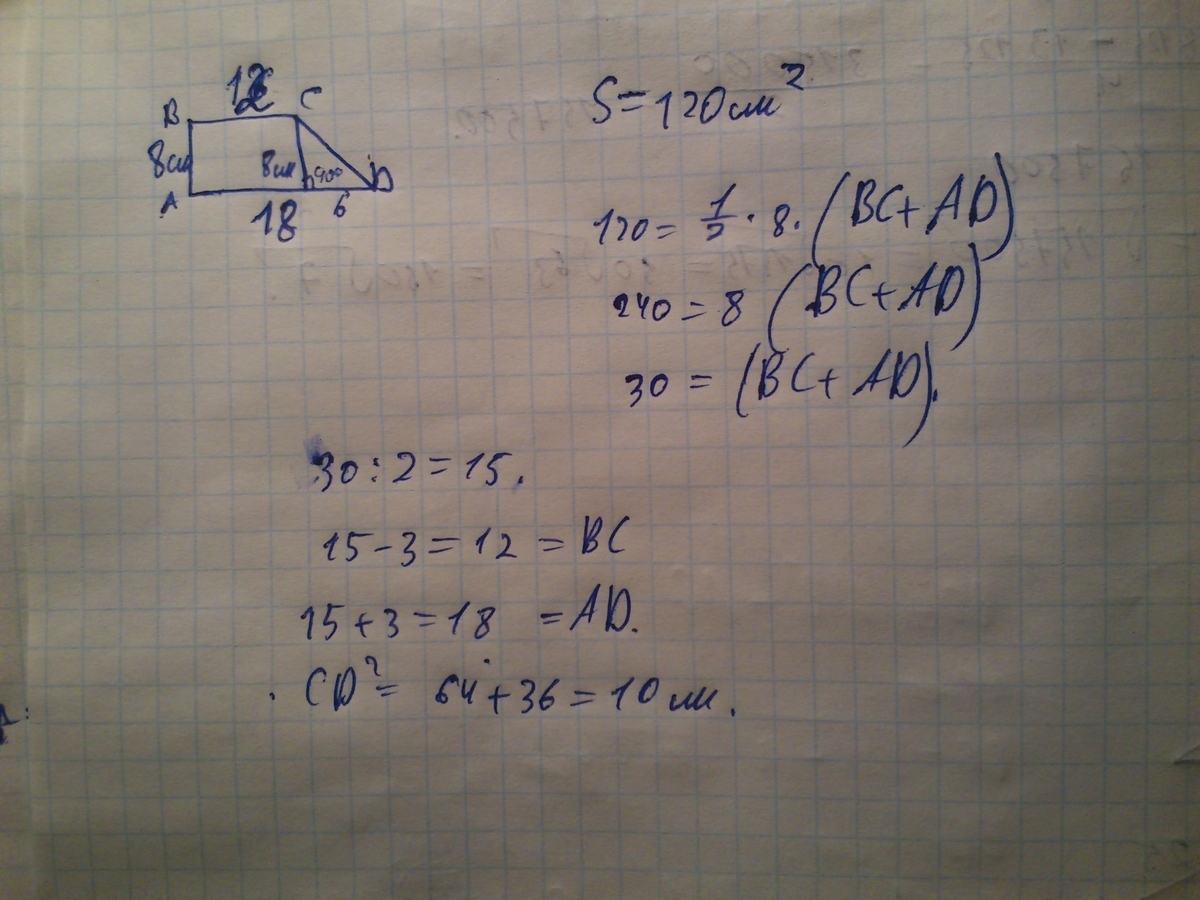 12
B C
8см 8см 90°
A D
18 6
S=120см²
120 = 1/2 · 8 · (BC+AD)
240 = 8 (BC+AD)
30 = (BC+AD).
30:2=15.
15-3=12 =BC
15+3=18 =AD.
CD²= 64+36=10см.